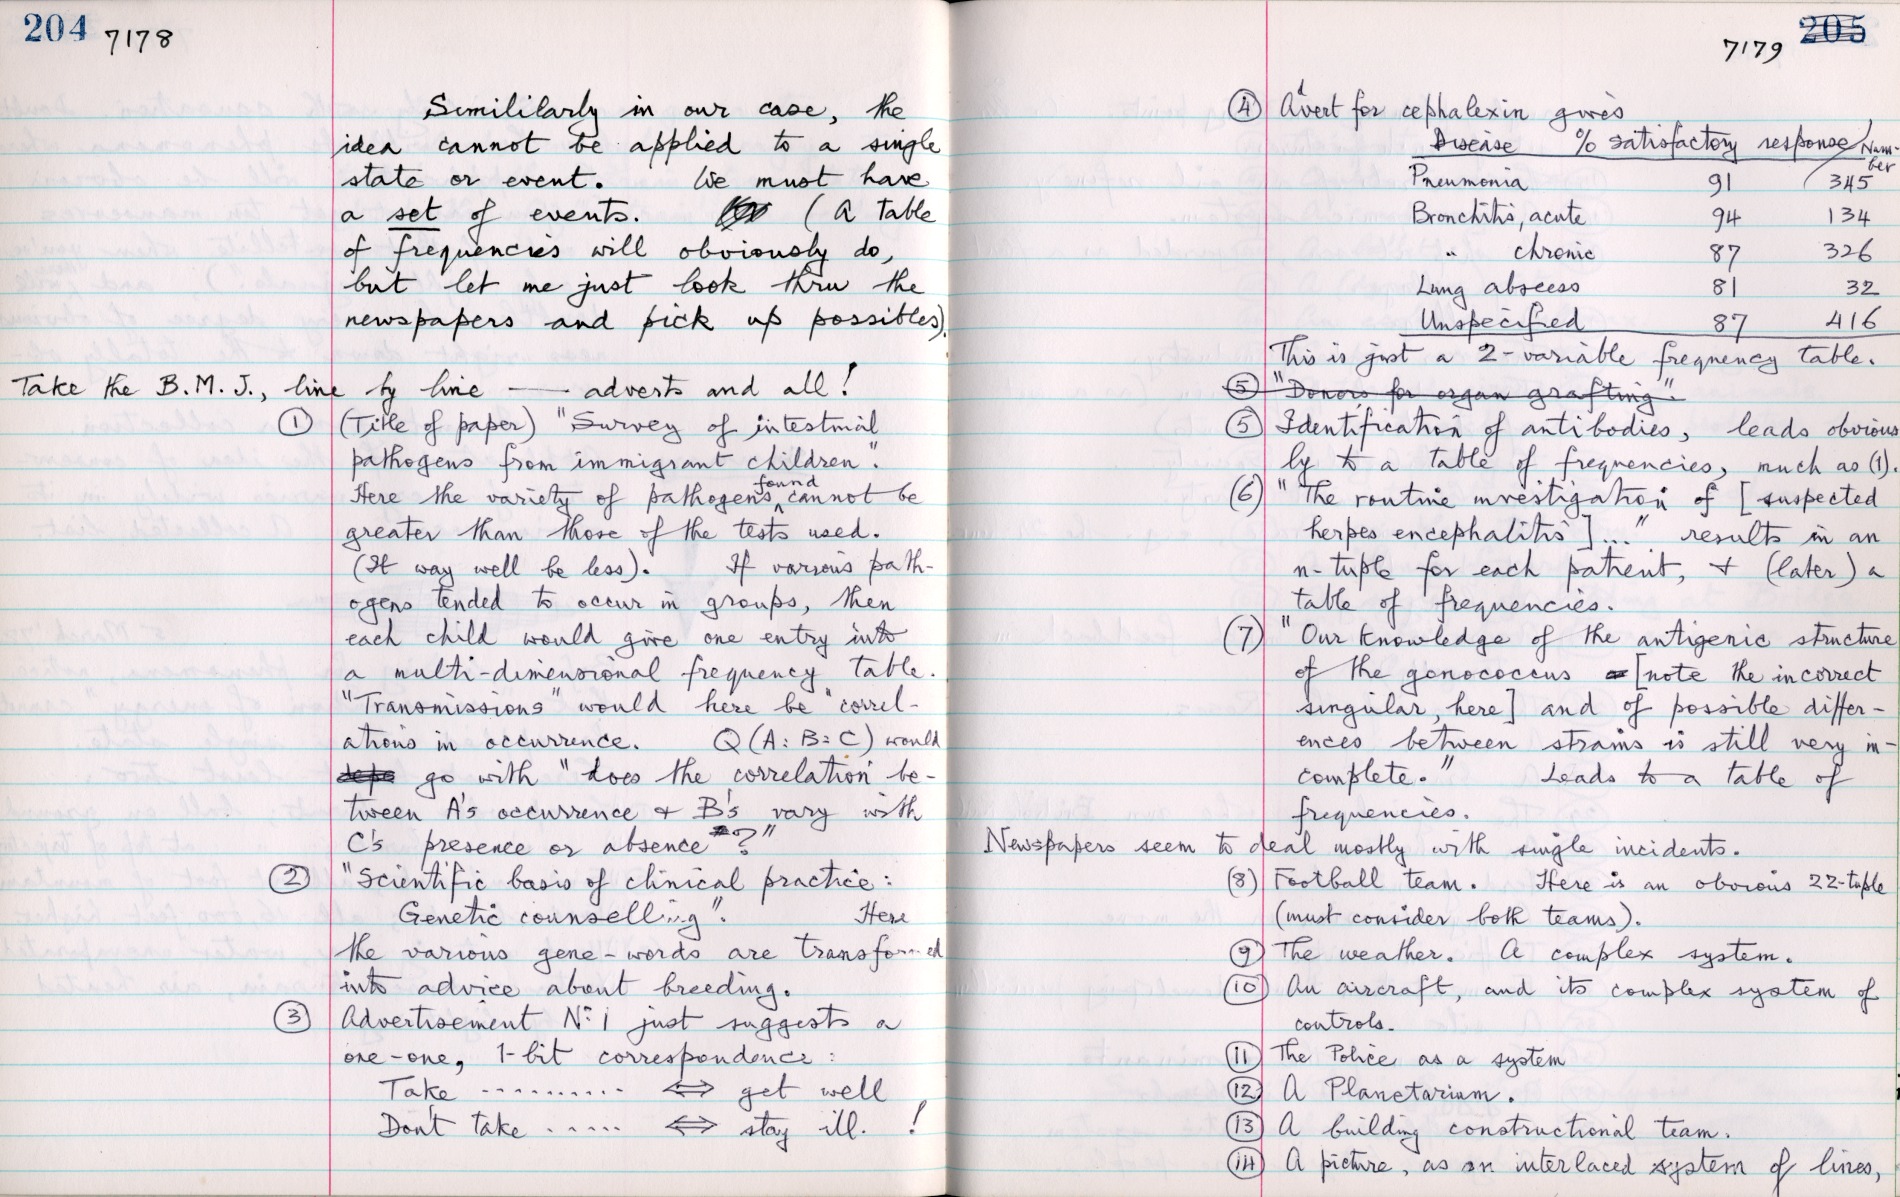 204 7178
Simililarly in our case, the
idea cannot be applied to a single
state or event. We must have
a set of events. (A table
of frequencies will obviously do,
but let me just look thru the
newspapers and pick up possibles).
Take the B.M.J., line by line — adverts and all!
① (Title of paper) "Survey of intestinal
pathogens from immigrant children".
Here the variety of pathogens found cannot be
greater than those of the tests used.
(It way well be less). If various path-
ogens tended to occur in groups, then
each child would give one entry into
a multi-dimensional frequency table.
"Transmissions" would here be "correl-
ations in occurrence. Q(A:B:C) would
go with "does the correlation be-
tween A's occurrence & B's vary with
C's presence or absence?"
② "Scientific basis of clinical practice:
Genetic counselling". Here
the various gene-words are transformed
into advice about breeding.
③ Advertisement Nº 1 just suggests a
one-one, 1-bit correspondence:
Take .......... ⇔ get well
Don't take ..... ⇔ stay ill. !
7179 205
④ Advert for cephalexin gives
Disease % satisfactory response / Num-
ber
Pneumonia 91 345
Bronchitis, acute 94 134
" chronic 87 326
Lung abscess 81 32
Unspecified 87 416
This is just a 2-variable frequency table.
⑤ "Donors for organ grafting".
⑤ Identification of antibodies, leads obvious
ly to a table of frequencies, much as (1).
(6) "The routine investigation of [suspected
herpes encephalitis]..." results in an
n-tuple for each patient, & (later) a
table of frequencies.
(7) "Our knowledge of the antigenic structure
of the gonococcus [note the incorrect
singular, here] and of possible differ-
ences between strains is still very in-
complete." Leads to a table of
frequencies.
Newspapers seem to deal mostly with single incidents.
(8) Football team. Here is an obvious 22-tuple
(must consider both teams).
⑨ The weather. A complex system.
⑩ An aircraft, and its complex system of
controls.
⑪ The Police as a system
⑫ A Planetarium.
⑬ A building constructional team.
⑭ A picture, as an interlaced system of lines,